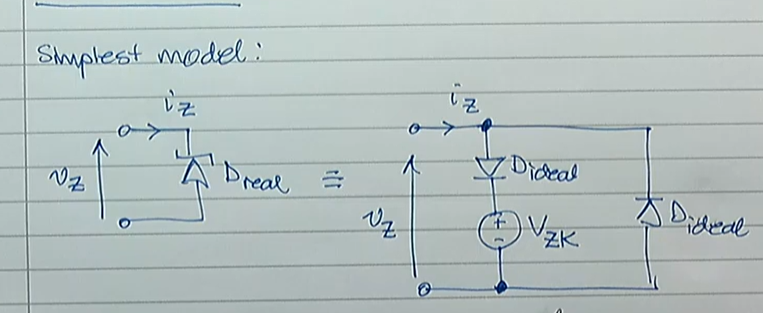 Simplest model:
iz
vz
Dreal
≡
iz
vz
Dideal
+
-
VZK
Dideal